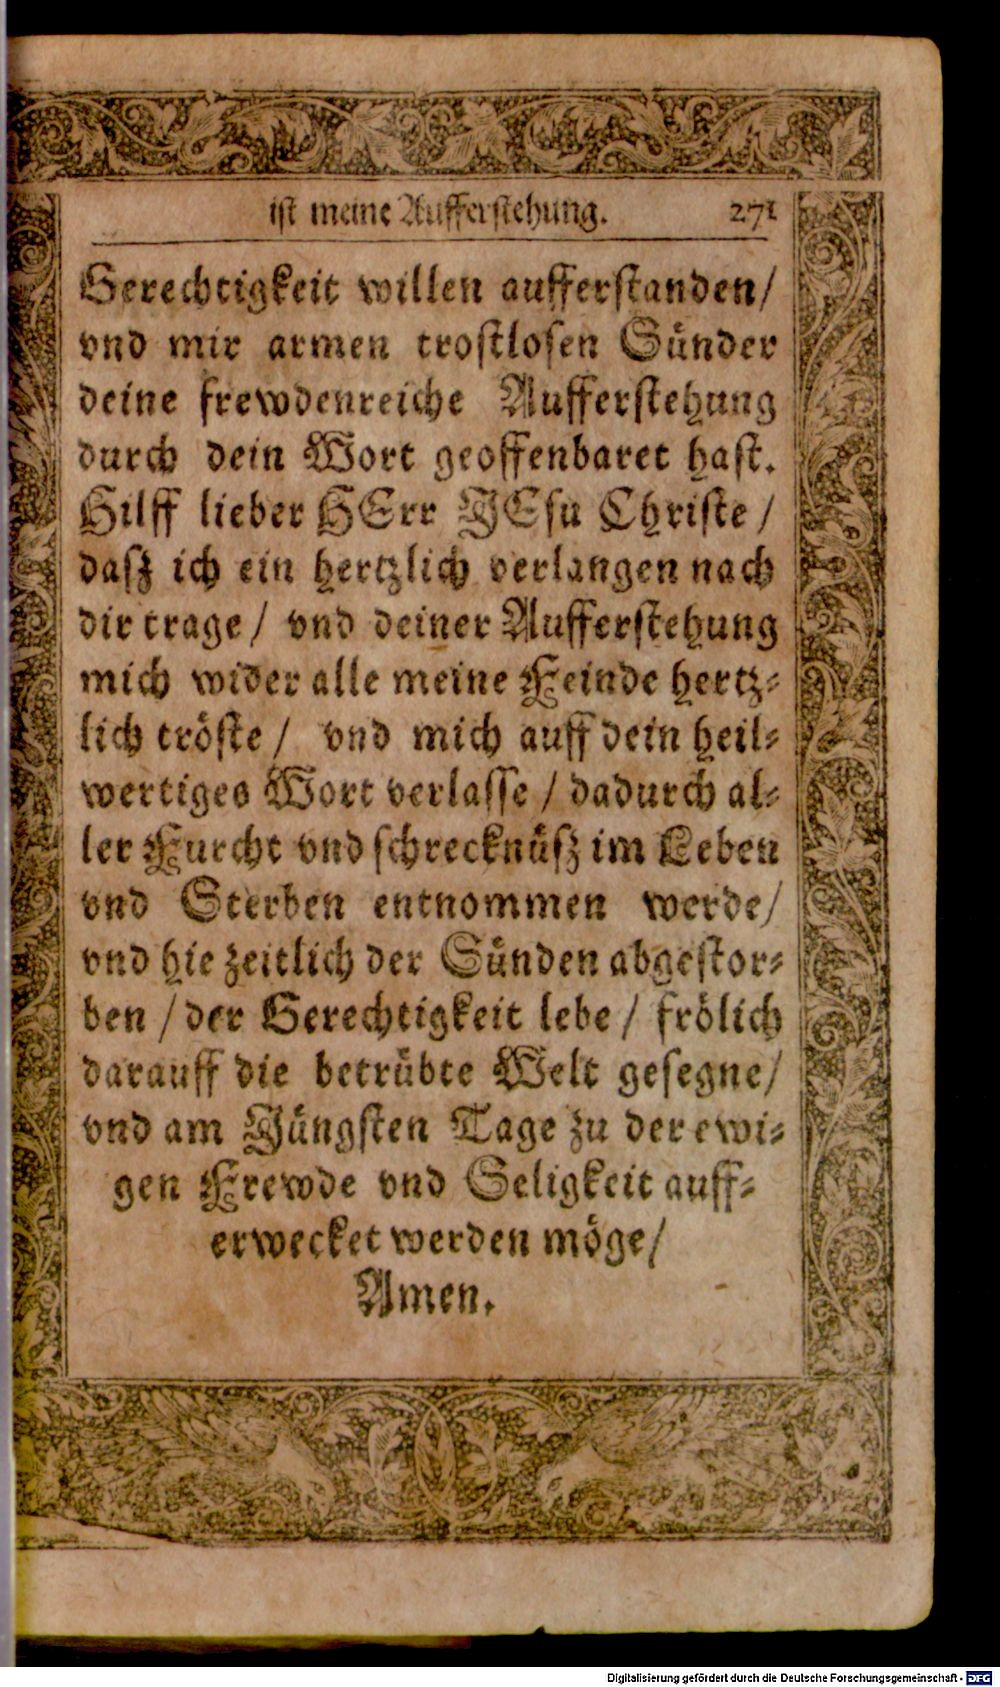 ist meine Aufferstehung. 271
Gerechtigkeit willen aufferstanden/
vnd mir armen trostlosen Sünder
deine frewdenreiche Aufferstehung
durch dein Wort geoffenbaret hast.
Hilff lieber HErr JEsu Christe /
dasz ich ein hertzlich verlangen nach
dir trage / vnd deiner Aufferstehung
mich wider alle meine Feinde hertz-
lich tröste / vnd mich auff dein heil-
wertiges Wort verlasse / dadurch al-
ler Furcht vnd schrecknüsz im Leben
vnd Sterben entnommen werde/
vnd hie zeitlich der Sünden abgestor-
ben / der Gerechtigkeit lebe / frölich
darauff die betrübte Welt gesegne/
vnd am Jüngsten Tage zu der ewi-
gen Frewde vnd Seligkeit auff-
erwecket werden möge/
Amen.
Digitalisierung gefördert durch die Deutsche Forschungsgemeinschaft - DFG